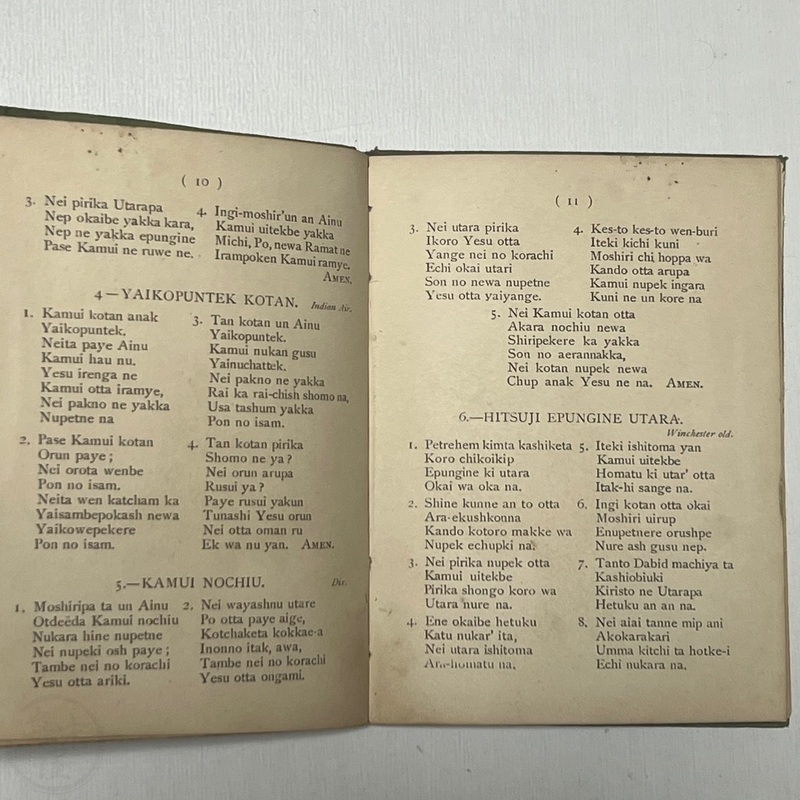 ( 10 )
3. Nei pirika Utarapa
Nep okaibe yakka kara,
Nep ne yakka epungine
Pase Kamui ne ruwe ne.
4. Ingi-moshir'un an Ainu
Kamui uitekbe yakka
Michi, Po, newa Ramat ne
Irampoken Kamui ramye.
AMEN.
4—YAIKOPUNTEK KOTAN.
Indian Air.
1. Kamui kotan anak
Yaikopuntek.
Neita paye Ainu
Kamui hau nu.
Yesu irenga ne
Kamui otta iramye,
Nei pakno ne yakka
Nupetne na
2. Pase Kamui kotan
Orun paye;
Nei orota wenbe
Pon no isam.
Neita wen katcham ka
Yaisambepokash newa
Yaikowepekere
Pon no isam.
3. Tan kotan un Ainu
Yaikopuntek.
Kamui nukan gusu
Yainuchattek.
Nei pakno ne yakka
Rai ka rai-chish shomo na,
Usa tashum yakka
Pon no isam.
4. Tan kotan pirika
Shomo ne ya?
Nei orun arupa
Rusui ya?
Paye rusui yakun
Tunashi Yesu orun
Nei otta oman ru
Ek wa nu yan. AMEN.
5.—KAMUI NOCHIU.
Dix.
1. Moshiripa ta un Ainu
Otdeëda Kamui nochiu
Nukara hine nupetne
Nei nupeki osh paye;
Tambe nei no korachi
Yesu otta ariki.
2. Nei wayashnu utare
Po otta paye aige,
Kotchaketa kokkae-a
Inonno itak, awa,
Tambe nei no korachi
Yesu otta ongami.
( 11 )
3. Nei utara pirika
Ikoro Yesu otta
Yange nei no korachi
Echi okai utari
Son no newa nupetne
Yesu otta yaiyange.
4. Kes-to kes-to wen-buri
Iteki kichi kuni
Moshiri chi hoppa wa
Kando otta arupa
Kamui nupek ingara
Kuni ne un kore na
5. Nei Kamui kotan otta
Akara nochiu newa
Shiripekere ka yakka
Son no aerannakka,
Nei kotan nupek newa
Chup anak Yesu ne na. AMEN.
6.—HITSUJI EPUNGINE UTARA.
Winchester old.
1. Petrehem kimta kashiketa
Koro chikoikip
Epungine ki utara
Okai wa oka na.
2. Shine kunne an to otta
Ara-ekushkonna
Kando kotoro makke wa
Nupek echupki na.
3. Nei pirika nupek otta
Kamui uitekbe
Pirika shongo koro wa
Utara nure na.
4. Ene okaibe hetuku
Katu nukar' ita,
Nei utara ishitoma
Ara-homatu na.
5. Iteki ishitoma yan
Kamui uitekbe
Homatu ki utar' otta
Itak-hi sange na.
6. Ingi kotan otta okai
Moshiri uirup
Enupetnere orushpe
Nure ash gusu nep.
7. Tanto Dabid machiya ta
Kashiobiuki
Kiristo ne Utarapa
Hetuku an an na.
8. Nei aiai tanne mip ani
Akokarakari
Umma kitchi ta hotke-i
Echi nukara na.